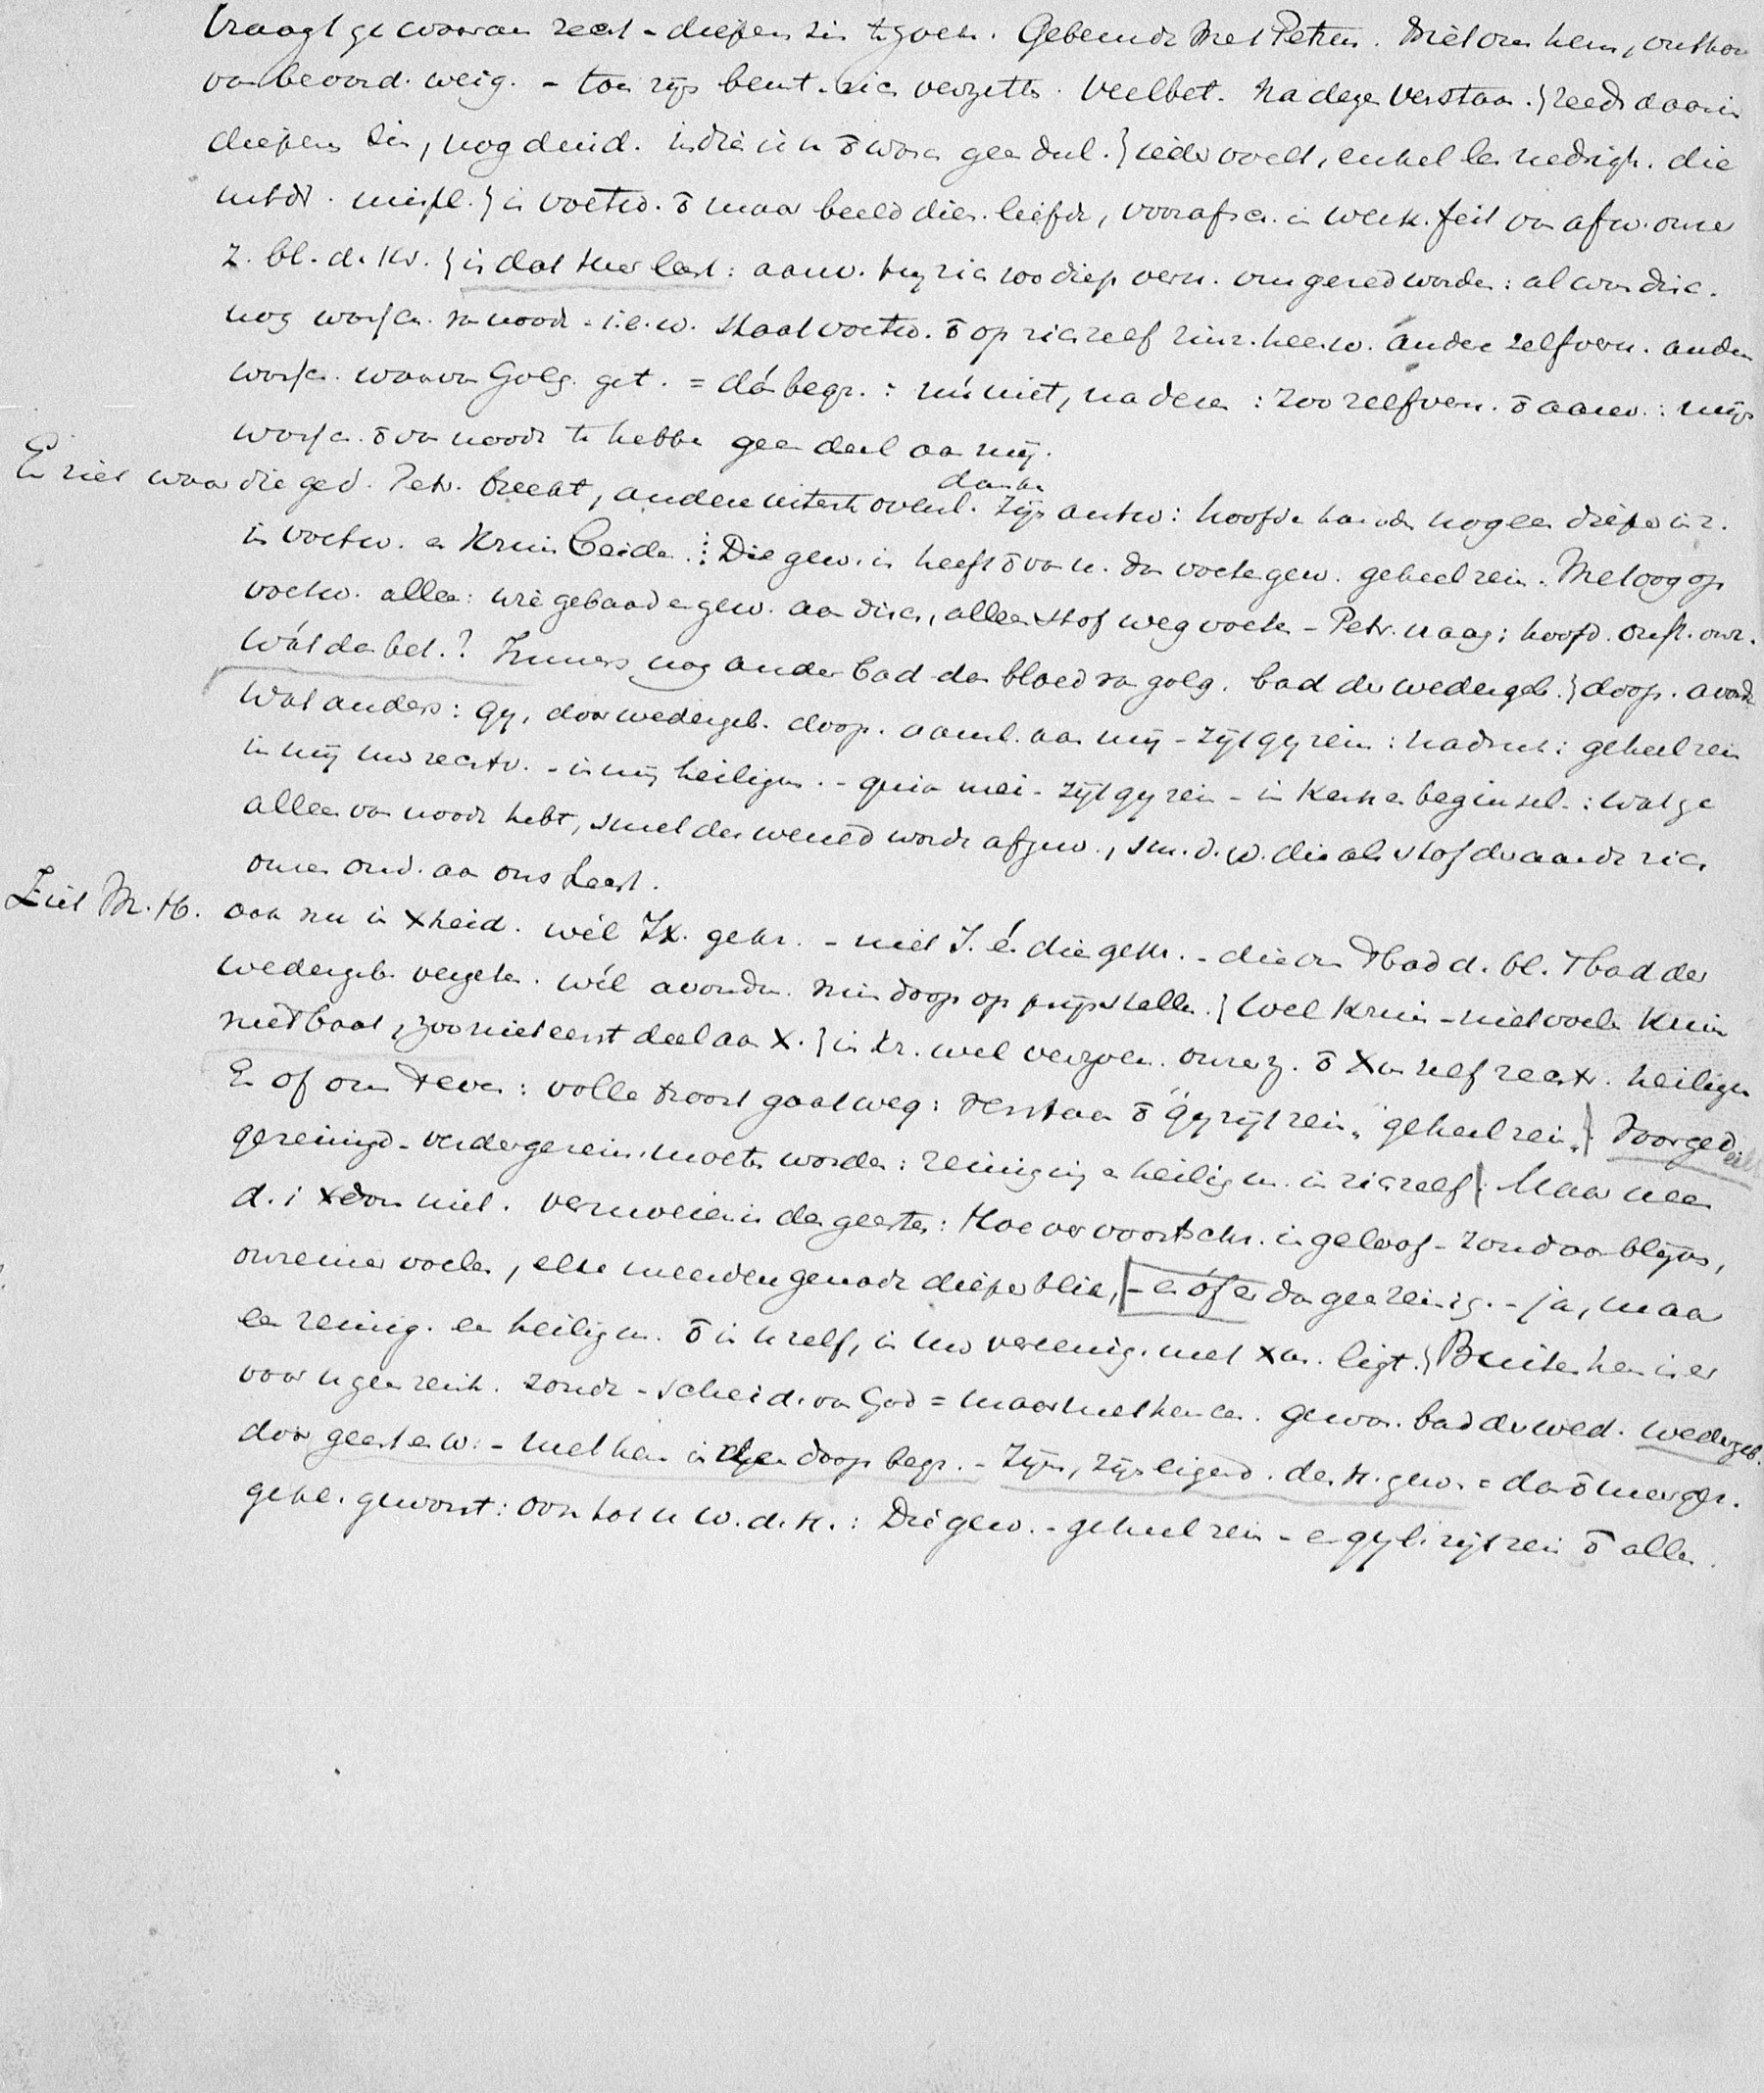 Vraagt ge waarom recht - diepen zin te zoek. Gebeurde met Petrus. Niet om hem, onthou
van beoord. weig. - toen zijn beurt - zich verzette. Veelbet. Na dezen verstaan. } reeds daarin
diepen zin, nog duid. indien ik u ō wasch geen deel. } ieder voelt, enkel les nedrigh. die
uitdr. mispl. } in voetw. ō maar beeld dien. liefde, voorafsch. in werk. feit van afw. onzer
z. bl. d. Kr. } is dat Heer laat: aanw. hij zich zoo diep vern. om gered worden: al waren disc.
nog wassch. van noode - i. e. w. staat voetw. ō op zichzelf zinz. heenw. andere zelfvern. andere
wassch. waarvan Golg. get. = dá begr. : nú niet, na dezen : zoo zelfvern. ō aanw. : mijn
wassch. ō van noode te hebben geen deel aan mij.
En niet waar die ged. Petr. breekt, andere uiterste overhel. Zijn antw: hoofd en handen nog een dieper inz.
danke
in voetw. en Kruis beiden. : Die gew. is heeft ō van n. dan voeten gew. geheel rein. Met oog op
voetw. alleen: wie gebaad en gew. aan disch, alleen stof weg voeten - Petr. vraag: hoofd. onst. onr.
Wát dan bet.? Immers nog ander bad dan bloed van golg. bad der wedergeb. } doop. avond
Wat anders: gij, door wedergeb. doop. aansl. aan mij - zijt gij rein: nadruk: geheel rein
in mij uw rechtv. - in mij heiligm. - quia mei - zijt gij rein - in kern en beginsel - : wat ge
alleen van noode hebt, smet der wereld worde afgew., sm. d. w. die als stof der aarde zich
onzer ond. aan ons hecht.
Ziet M. H. ook nu in Xheid. wél JX. gekr. - niet J. én die gekr. - die om 't bad d. bl. 't bad der
wedergeb. vergeten. wél avondm. min doop op prijs stellen. } Wel kruis - niet voeten Kruis
niet baat, zoo niet eerst deel aan X. } in Kr. wel verzoen. onzer z. ō X en zelf rechtv. heiligm
En of om 't even: volle troost gaat weg: verstaan ō "gij zijt rein" "geheel rein." } Voorged eel
gereinigd - verder gerein. moeten worden: reiniging en heiligm. in zichzelf } Maar neen
d. i Xdom niet. vermoeien is den geesten: Hoe ver voortschr. in geloof - zondaar blijven,
onreiner voelen, elken meerderen genade dieper blik, - en óf er dan geen reinig. - ja, maar
een reinig. en heiligm. ō in u zelf, in uw vereenig. met Xus. ligt. } Buiten hem is er
voor u geen reinh. zonde - scheid. van God = maar met hem éen. gewor. bad der wed. wedergeb.
door geest en w. - met hem in den doop begr. - Zijn, Zijn eigend. des H. gew. = dan ō meer ger.
gehl. geworst: ook tot u W. d. H. : Die gew. - geheel rein - en gyl. zijt rein ō allen.